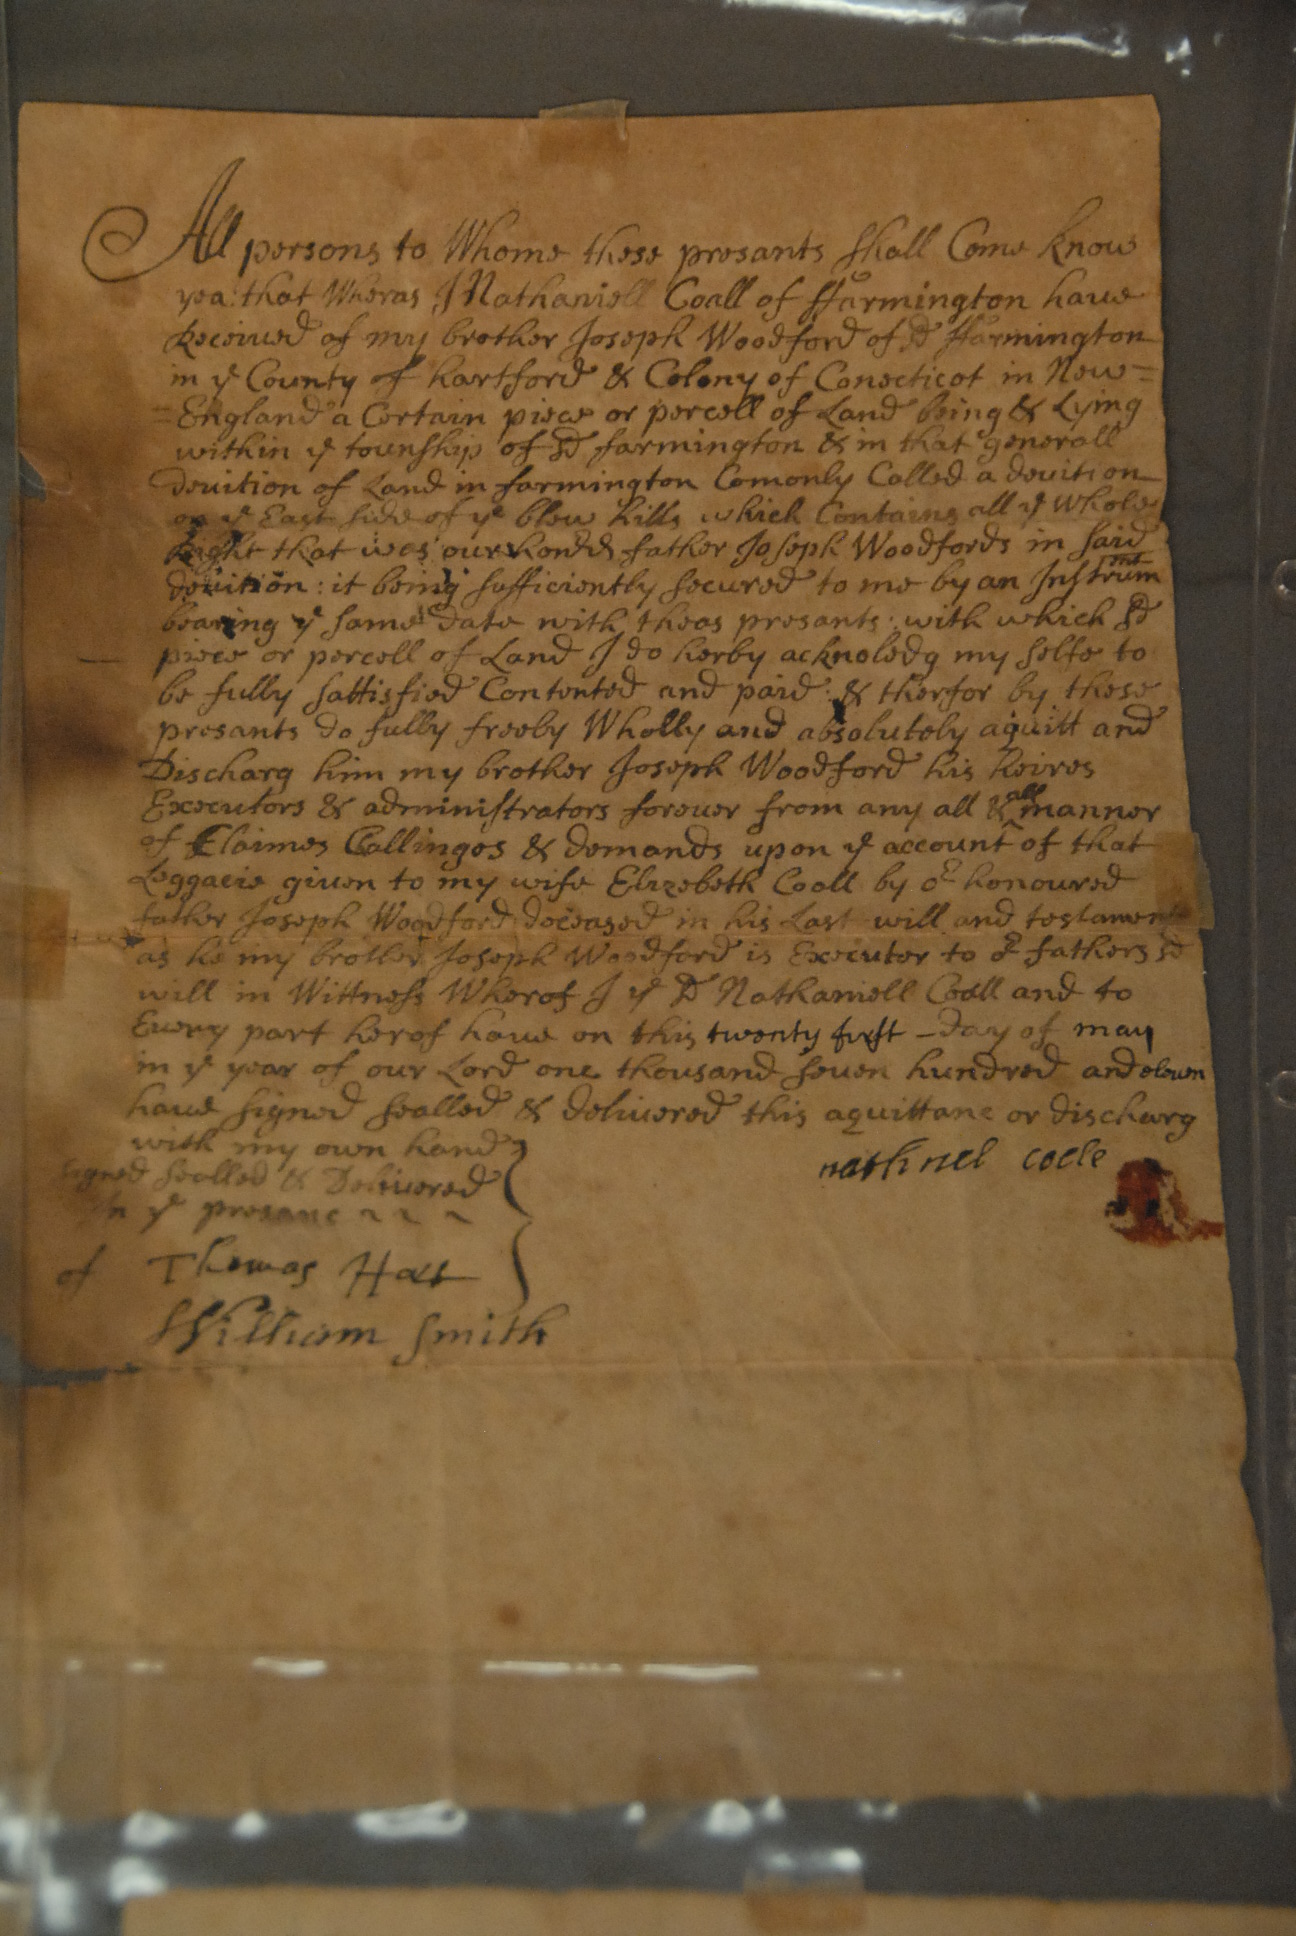 All persons to Whome these presants shall Come know
yea: that Wheras I Nathaniell Coall of ffarmington haue
Receiued of my brother Joseph Woodford of sd ffarmington
in ye County of hartford & Colony of Conecticot in New=
=England a Certain piece or percell of Land being & Lying
within ye township of sd farmington & in that generall
deuition of Land in farmington Comonly Called a deuition
on ye East side of ye blew hills which Contains all ye Whole
Right that was our hond father Joseph Woodfords in said
deuition: it being sufficiently secured to me by an Instrumnt
bearing ye same date with theas presants: with which sd
piece or percell of Land I do herby acknoledg my selfe to
be fully sattisfied Contented and paid: & therfor by these
presants do fully freely Wholly and absolutely aquitt and
Discharg him my brother Joseph Woodford his heires
Executors & administrators foreuer from any all & all manner
of Claimes Callinges & demands upon ye account of that
Leggacie giuen to my wife Elizebeth Coall by or honoured
father Joseph Woodford deceased in his Last will and testament
as he my brother Joseph Woodford is Executor to or fathers sd
will in Wittness Wherof I ye sd Nathaniell Coall and to
Euery part herof haue on this twenty furst day of may
in ye year of our Lord one thousand seuen hundred and eleuen
haue signed sealled & deliuered this aquittanc or discharg
with my own hand
nathinel coele
signed sealled & Deliuered
In ye presanc
of Thomas Hart
William Smith